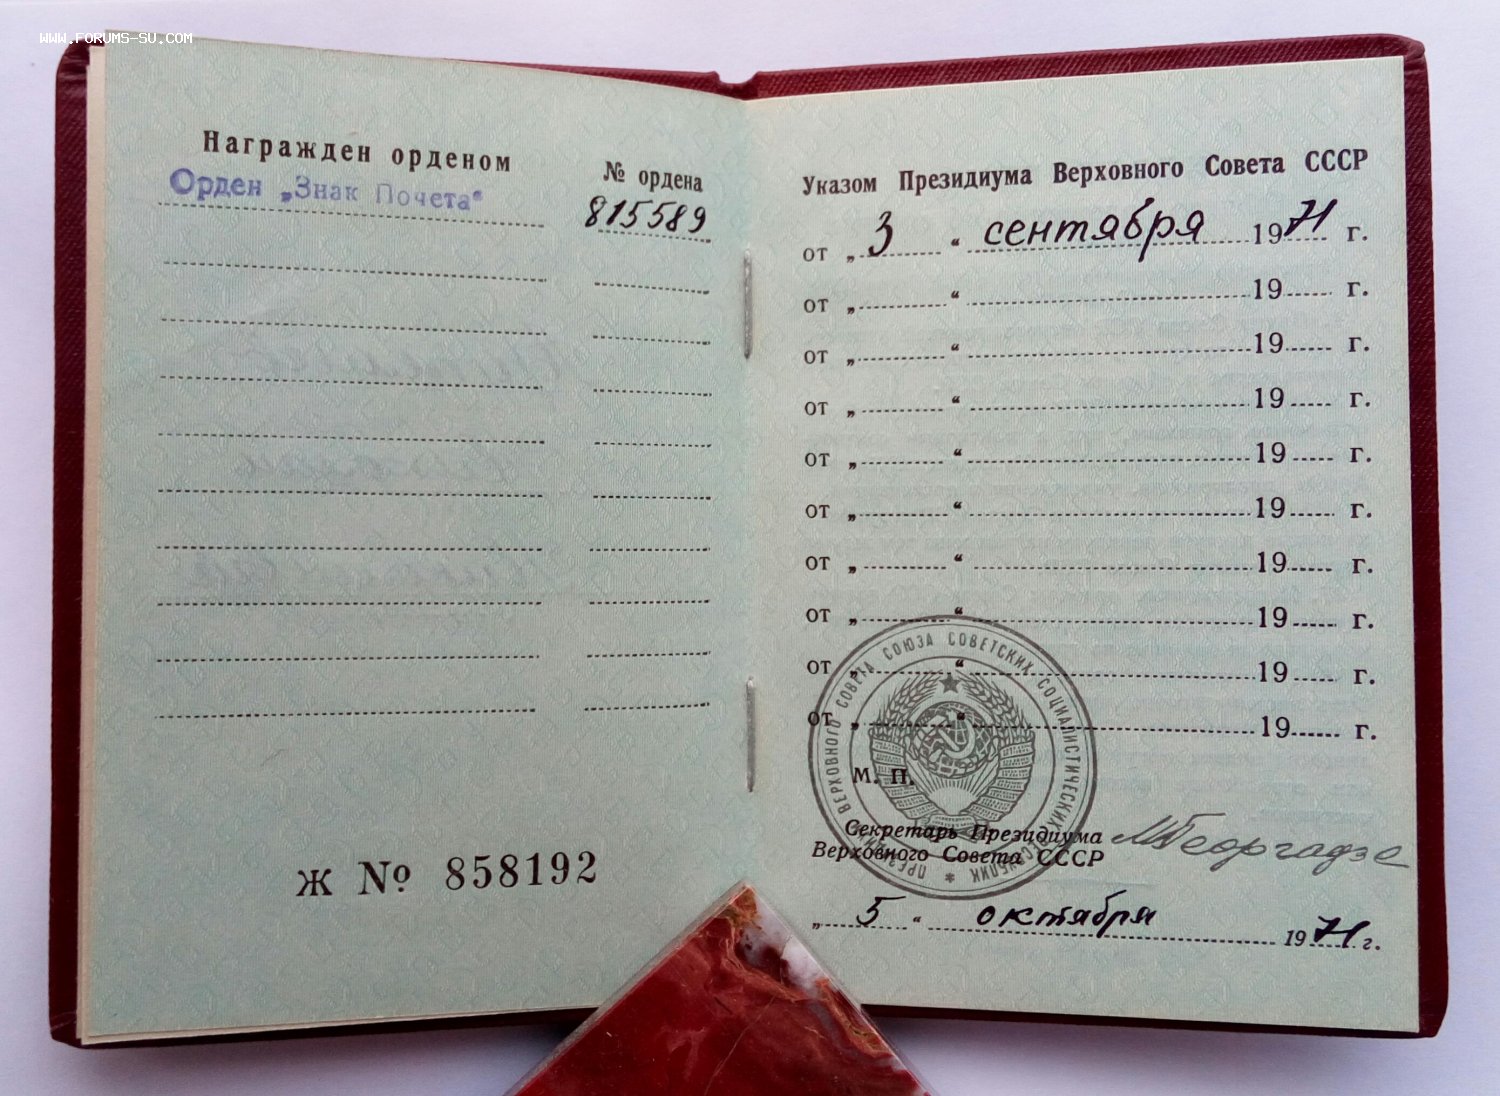 WWW.FORUMS-SU.COM
Награжден орденом
№ ордена
Орден „Знак Почета“
815589
Ж № 858192
Указом Президиума Верховного Совета СССР
от „ 3 “ сентября 1971 г.
от „ “ 19 г.
от „ “ 19 г.
от „ “ 19 г.
от „ “ 19 г.
от „ “ 19 г.
от „ “ 19 г.
от „ “ 19 г.
от „ “ 19 г.
от „ “ 19 г.
ПРЕЗИДИУМ ВЕРХОВНОГО СОВЕТА СОЮЗА СОВЕТСКИХ СОЦИАЛИСТИЧЕСКИХ РЕСПУБЛИК *
М. П.
Секретарь Президиума
Верховного Совета СССР
МГеоргадзе
„ 5 “ октября 1971 г.